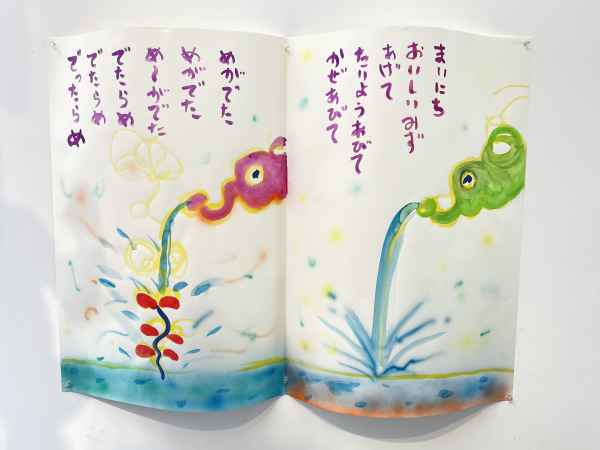 まいにち
おいしいみず
あげて
たいようあびて
かぜあびて
めがでた
めがでた
め〜がでた
でたらめ
でたらめ
でったらめ